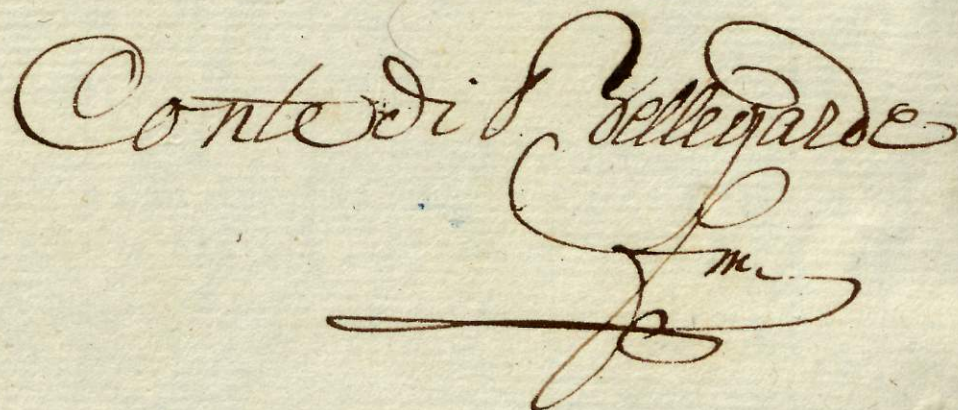 Conte di Bellegarde
fm.